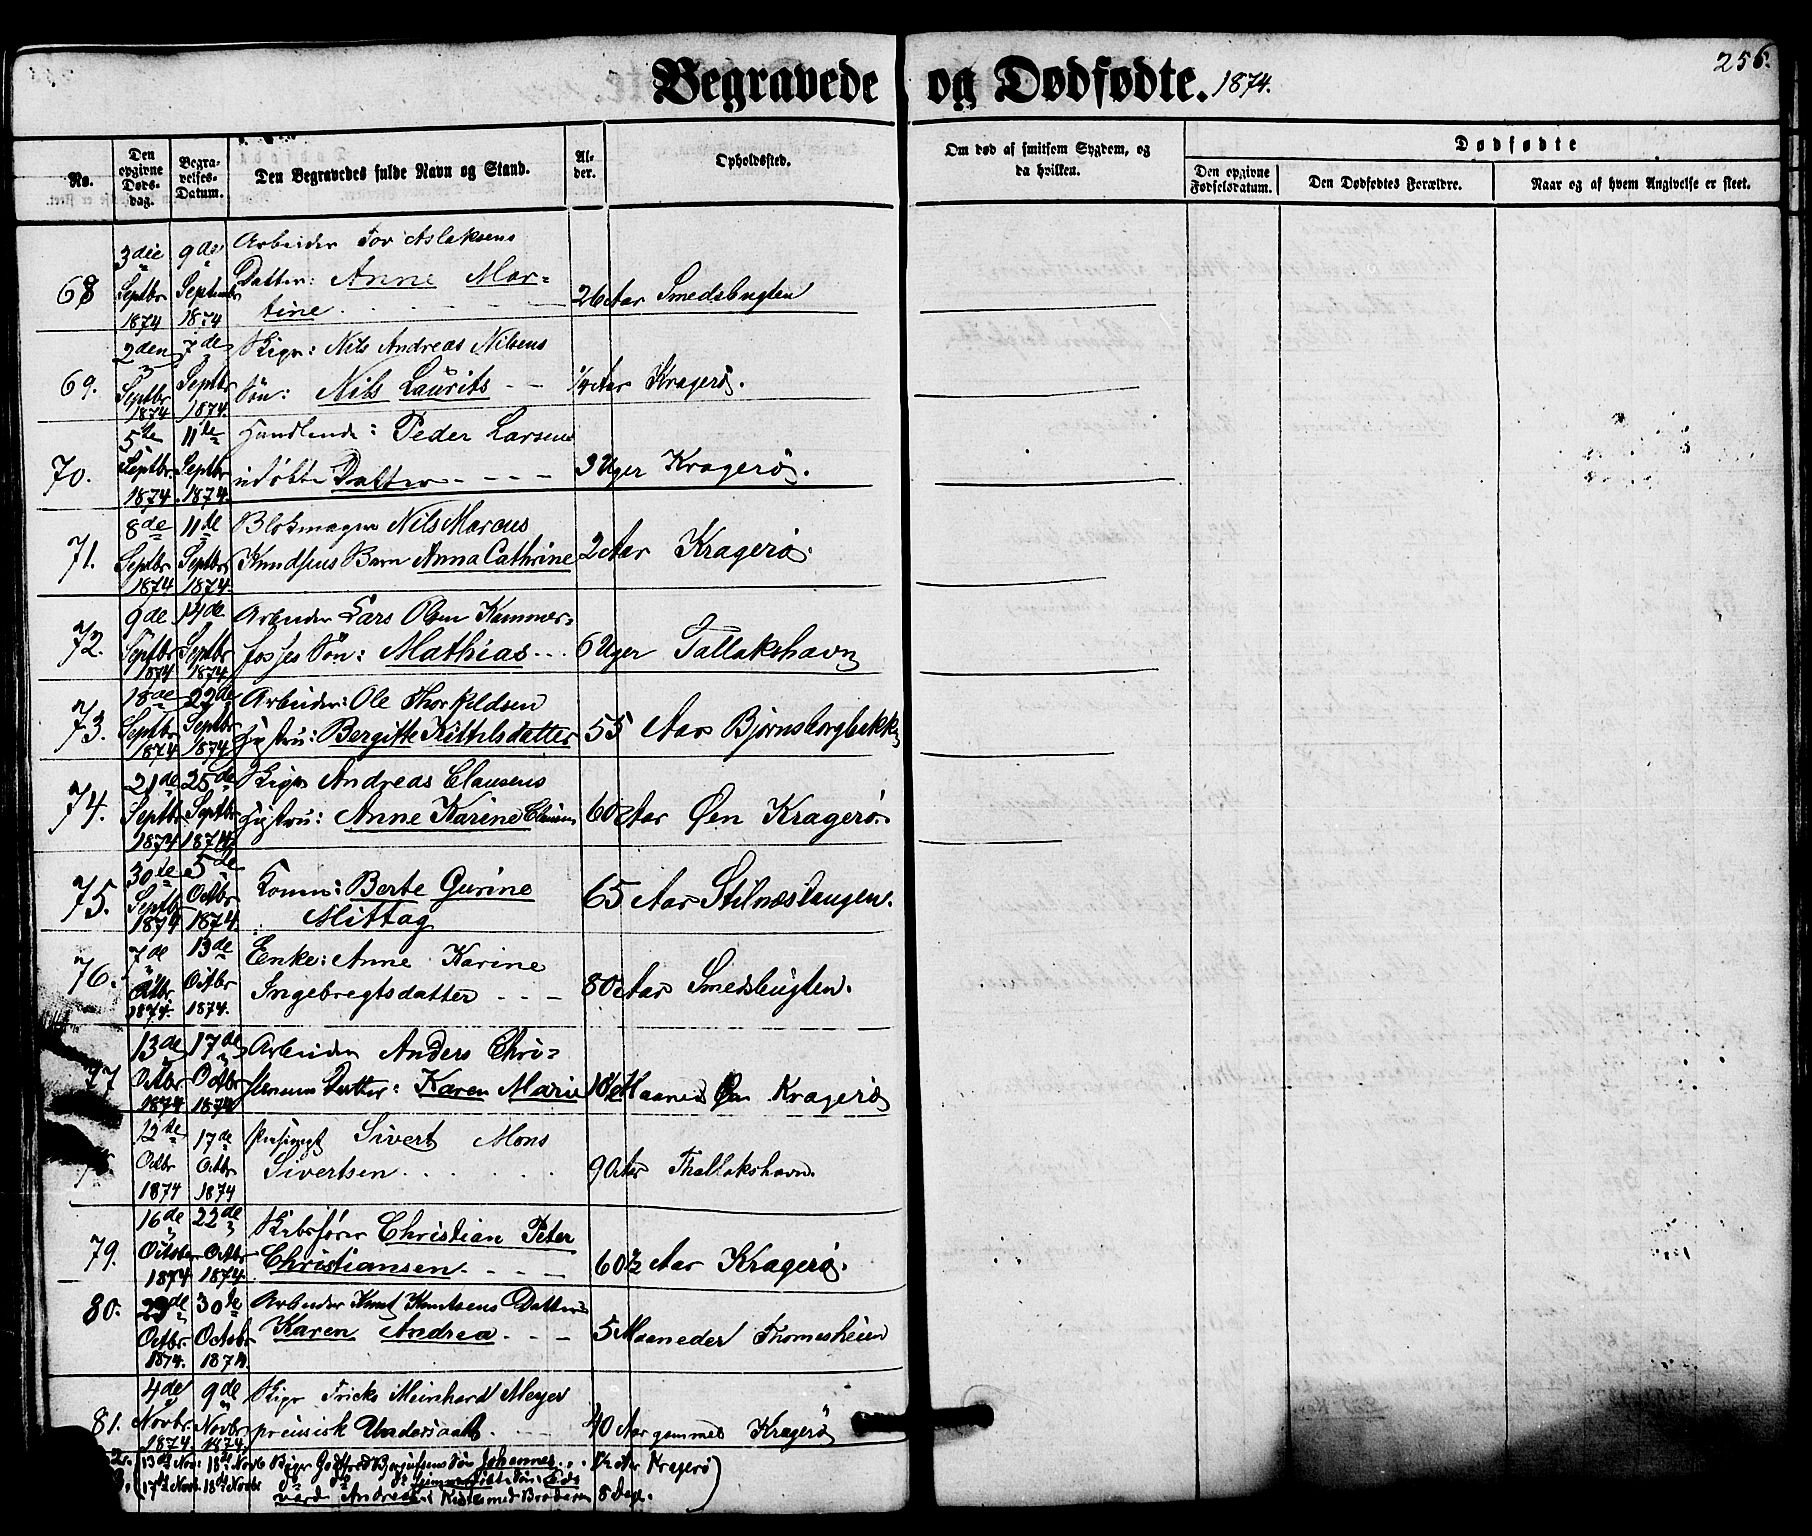 256.
Begravede og Dødfødte. 1874.
No.
Den opgivne Døds-dag.
Begra-velses-Datum.
Den Begravedes fulde Navn og Stand.
Al-der.
Opholdssted.
Om død af smitsom Sygdom, og da hvilken.
Dødfødte
Den opgivne Fødselsdatum.
Den Dødfødtes Forældre.
Naar og af hvem Angivelse er skeet.
68 3die Septbr 1874 9de September 1874 Arbeider Tor Aslaksens
Datter: Anne Mar-
tine 26 Aar Smedsbugten
69. 2den Septbr 1874 7de Septbr 1874. Skipr: Nils Andreas Nilsens
Søn: Nils Laurits 1/4 Aar Kragerø.
70. 5te Septbr. 1874 11te Septbr 1874. Handlende: Peder Larsens
udøbte Datter 3 Uger Kragerø.
71. 8de Septbr 1874 11te Septbr 1874. Blokmager Nils Marcus
Knudsens Barn Anna Cathrine 2 Aar Kragerø.
72. 9de Septbr 1874 14de Septbr 1874 Arbeider Lars Olsen Kammer-
fosses Søn: Mathias 6 Uger Tallakshavn
73. 18de Septbr 1874 22de Septbr 1874 Arbeider: Ole Thorkildsen
Hustru: Bergitte Kittilsdatter 55 Aar Bjørnsborgbekk
74. 21de Septbr 1874 25de Septbr 1874 Skipr Andreas Clausens
Hustru: Anne Karine Clausen 60 Aar Øen Kragerø.
75. 30te Septbr 1874 5de Octbr 1874. Komm: Berte Gurine
Mittag 65 Aar Stilnæstangen.
76. 7de Octbr. 1874. 13de Octbr 1874. Enke: Anne Karine
Ingebregtsdatter 80 Aar Smedsbugten.
77 13de Octbr 1874 17de Octbr 1874 Arbeider Anders Chri-
stensens Datter: Karen Marie 18 Maaned Øen Kragerø
12te Octbr 1874 17de Octbr 1874 Sivert Mons
Sivertsen 90 Aar Thallakshavn.
79. 16de October 1874 22de Octbr 1874. Skibsfører Christian Peter
Christiansen. 60 1/2 Aar Kragerø.
80. 23de Octbr. 1874. 30te Octobr 1874. Arbeider Knut Knutsens Datter
Karen Andrea 5 Maaneder Thomesheien
81. 4de Novbr 1874 9de Novbr 1874. Skipr Fricks Meinhard Meyer
preussisk Undersaat 40 Aar gammel Kragerø
2. 13de Nov: 18de Novb Søn Johannes 1/2 Aar Kragerø
3. 17de Novb. 18de Novbr Søn: Ed-
vard Andreas Kiste med Broderen 8 Dage.